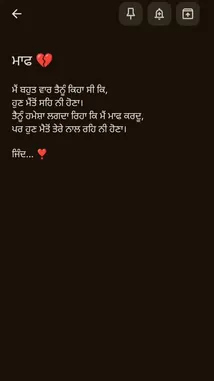 ਮਾਫ 💔
ਮੈਂ ਬਹੁਤ ਵਾਰ ਤੈਨੂੰ ਕਿਹਾ ਸੀ ਕਿ,
ਹੁਣ ਮੈਂਤੋਂ ਸਹਿ ਨੀ ਹੋਣਾ।
ਤੈਨੂੰ ਹਮੇਸ਼ਾ ਲਗਦਾ ਰਿਹਾ ਕਿ ਮੈਂ ਮਾਫ ਕਰਦੂ,
ਪਰ ਹੁਣ ਮੈਤੋਂ ਤੇਰੇ ਨਾਲ ਰਹਿ ਨੀ ਹੋਣਾ।
ਜਿੰਦ... ❣️